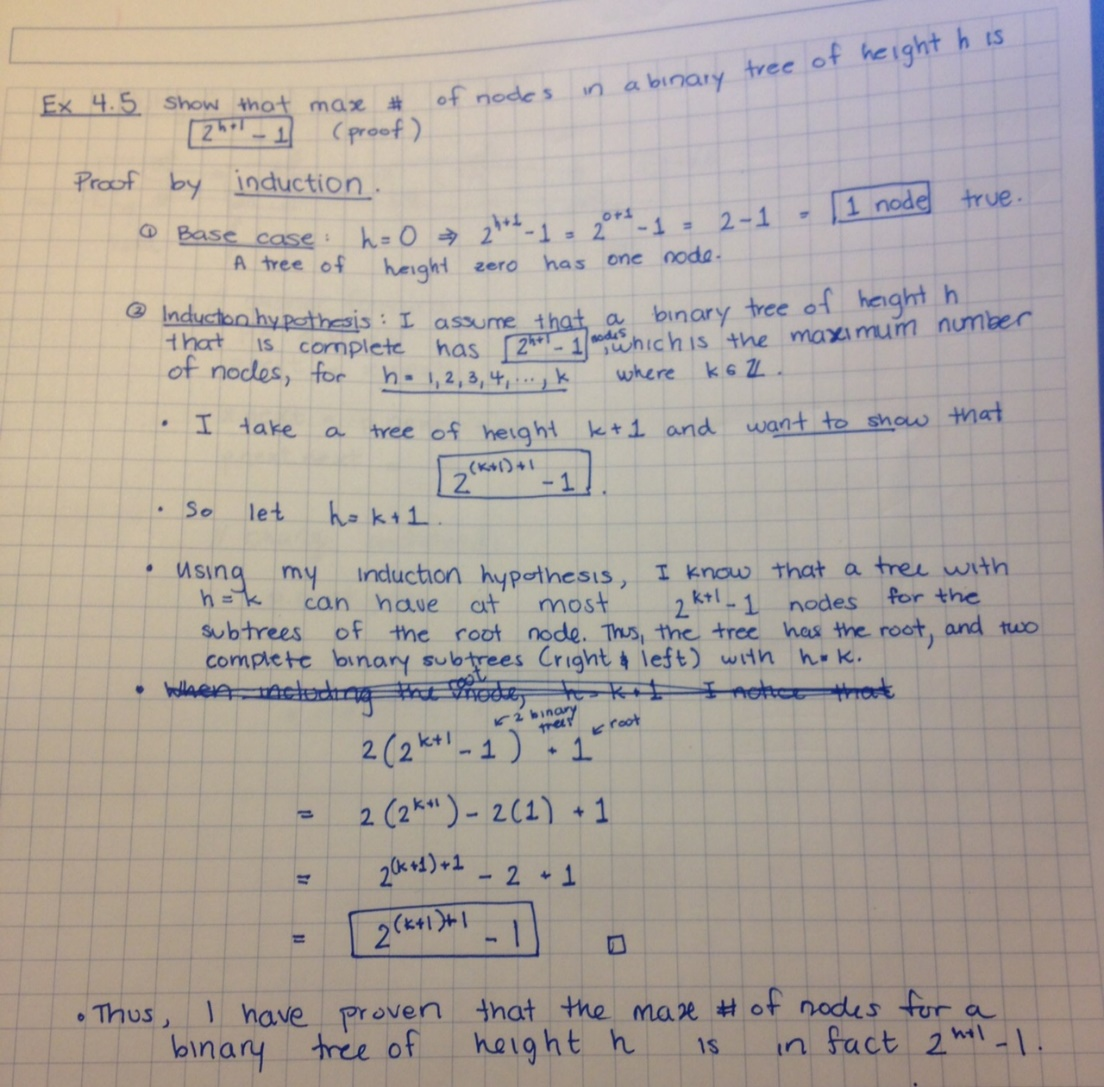 Ex 4.5 show that max # of nodes in a binary tree of height h is
2^{h+1} - 1 (proof)
Proof by induction.
① Base case: h=0 ⇒ 2^{h+1} - 1 = 2^{0+1} - 1 = 2-1 = 1 node true.
A tree of height zero has one node.
② Induction hypothesis: I assume that a binary tree of height h
that is complete has 2^{h+1} - 1 nodes, which is the maximum number
of nodes, for h = 1,2,3,4,..., k where k ∈ ℤ.
• I take a tree of height k+1 and want to show that
2^{(k+1)+1} - 1.
• So let h = k+1.
• Using my induction hypothesis, I know that a tree with
h = k can have at most 2^{k+1} - 1 nodes for the
subtrees of the root node. Thus, the tree has the root, and two
complete binary subtrees (right & left) with h = k.
• When including the root node, h = k+1 I notice that
↙ 2 binary trees ↙ root
2(2^{k+1} - 1) + 1
= 2(2^{k+1}) - 2(1) + 1
= 2^{(k+1)+1} - 2 + 1
= 2^{(k+1)+1} - 1 □
• Thus, I have proven that the max # of nodes for a
binary tree of height h is in fact 2^{h+1} - 1.